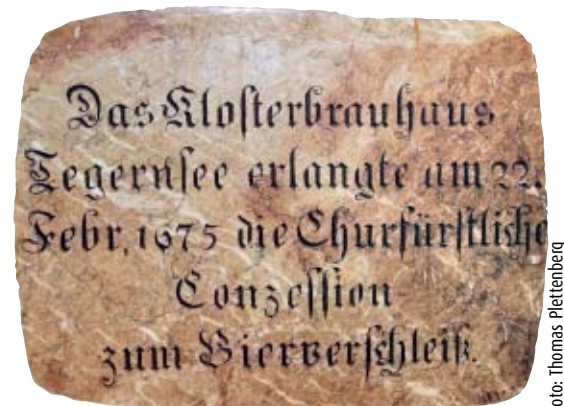 Das Klosterbrauhaus
Tegernsee erlangte am 22.
Febr. 1675 die Churfürstliche
Conzession
zum Bierverschleiß.
oto: Thomas Plettenberg